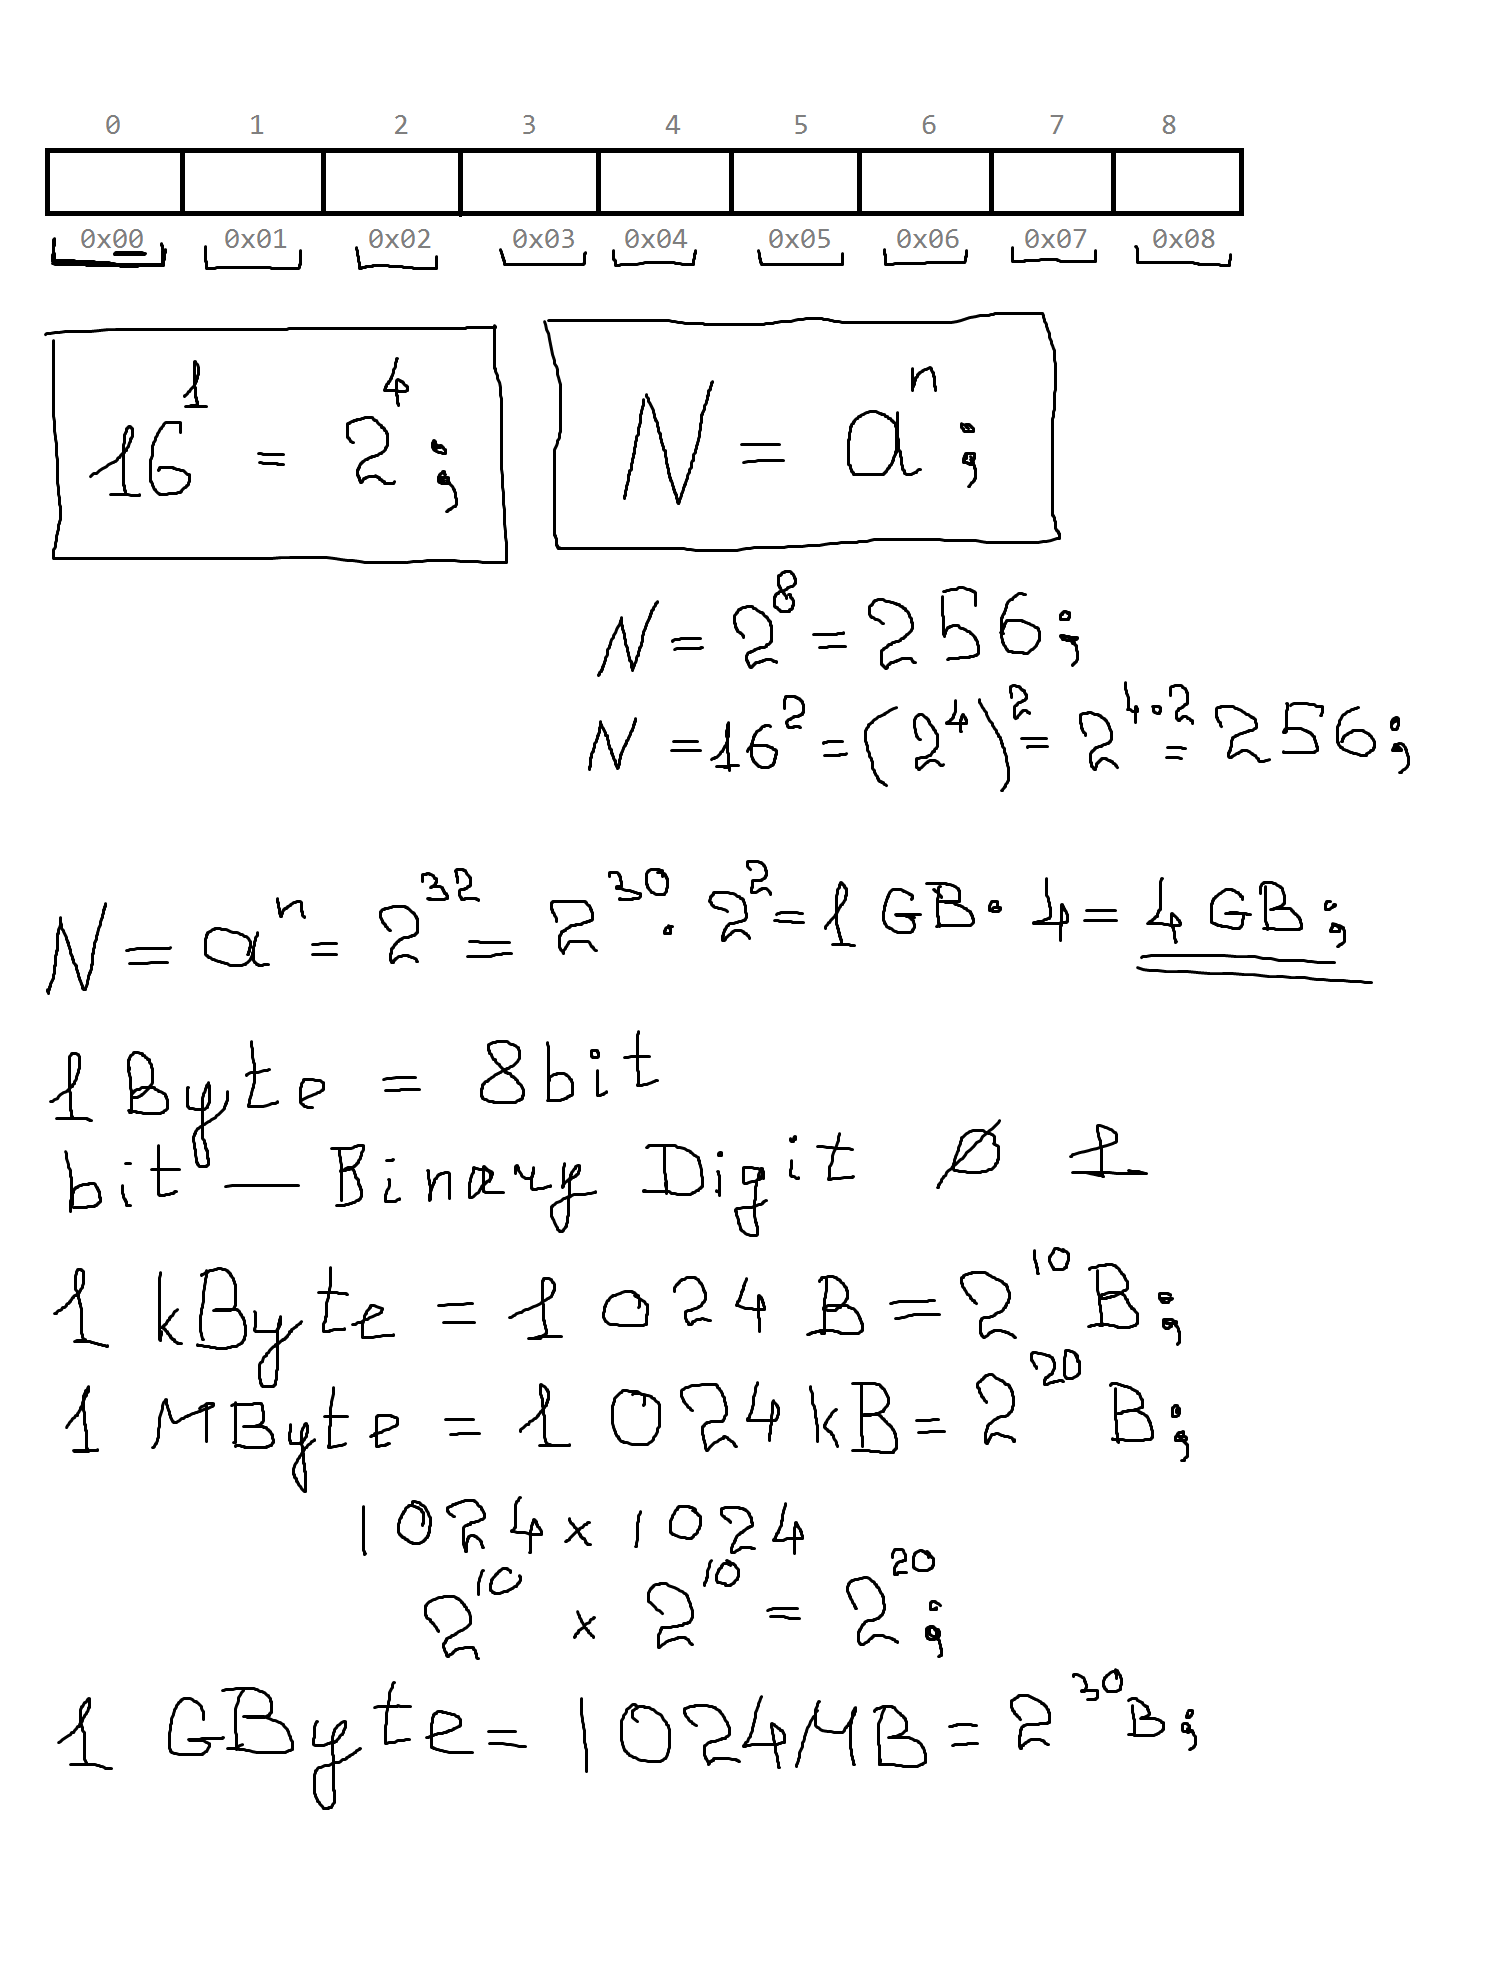 0 1 2 3 4 5 6 7 8
0x00 0x01 0x02 0x03 0x04 0x05 0x06 0x07 0x08
16¹ = 2⁴;
N = aⁿ;
N = 2⁸ = 256;
N = 16² = (2⁴)² = 2⁴·² = 256;
N = aⁿ = 2³² = 2³⁰ · 2² = 1 GB · 4 = 4 GB;
1 Byte = 8bit
bit — Binary Digit 0 1
1 kByte = 1 024 B = 2¹⁰ B;
1 MByte = 1 024 kB = 2²⁰ B;
1024 x 1024
2¹⁰ x 2¹⁰ = 2²⁰;
1 GByte = 1024 MB = 2³⁰ B;